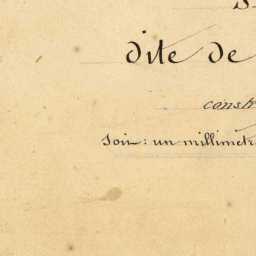 dite de
constr
Soit: un millimetr